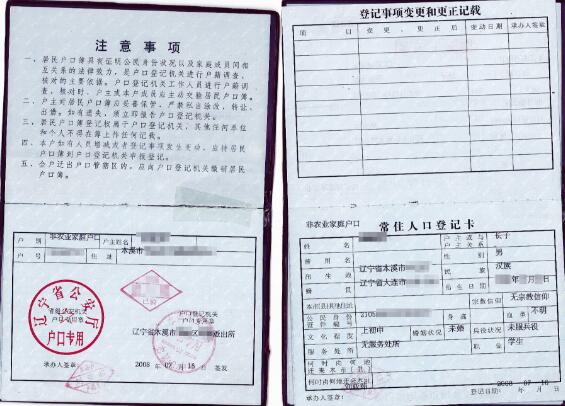 注意事项
一、居民户口簿具有证明公民身份状况以及家庭成员间相
互关系的法律效力，是户口登记机关进行户籍调查、
核对的主要依据。户口登记机关工作人员进行户籍调
查、核对时，户主或本户成员应主动交验居民户口簿。
二、户主对居民户口簿应妥善保管，严禁私自涂改、转让、
出借。如有遗失，须立即报告户口登记机关。
三、居民户口簿登记权属于户口登记机关，其他任何单位
和个人不得在簿上作任何记载。
四、本户如有人员增减或者登记事项发生变动，应持居民
户口簿到户口登记机关申报登记。
五、全户迁出户口管辖区的，应向户口登记机关缴销居民
户口簿。
户别 非农业家庭户口 户主姓名
户号 住址 本溪市
辽宁省公安厅
户口专用
户口登记机关
户口专用章
辽宁省本溪市 区 派出所
承办人签章：
2008 年 07 月 16 日 签发
登记事项变更和更正记载
项目 变更、更正后 变动日期 承办人签章
非农业家庭户口 常住人口登记卡
姓名 户主或与户主关系 长子
曾用名 性别 男
出生地 辽宁省本溪市 民族 汉族
籍贯 辽宁省大连市 出生日期 年 月 日
本市(县)其他住址 宗教信仰 无宗教信仰
公民身份证件编号 2105 身高 血型 不明
文化程度 上初中 婚姻状况 未婚 兵役状况 未服兵役
服务处所 无服务处所 职业 学生
何时由何地迁来本市(县)
何时由何地迁来本址
承办人签章： 登记日期：2008 07 16
年 月 日